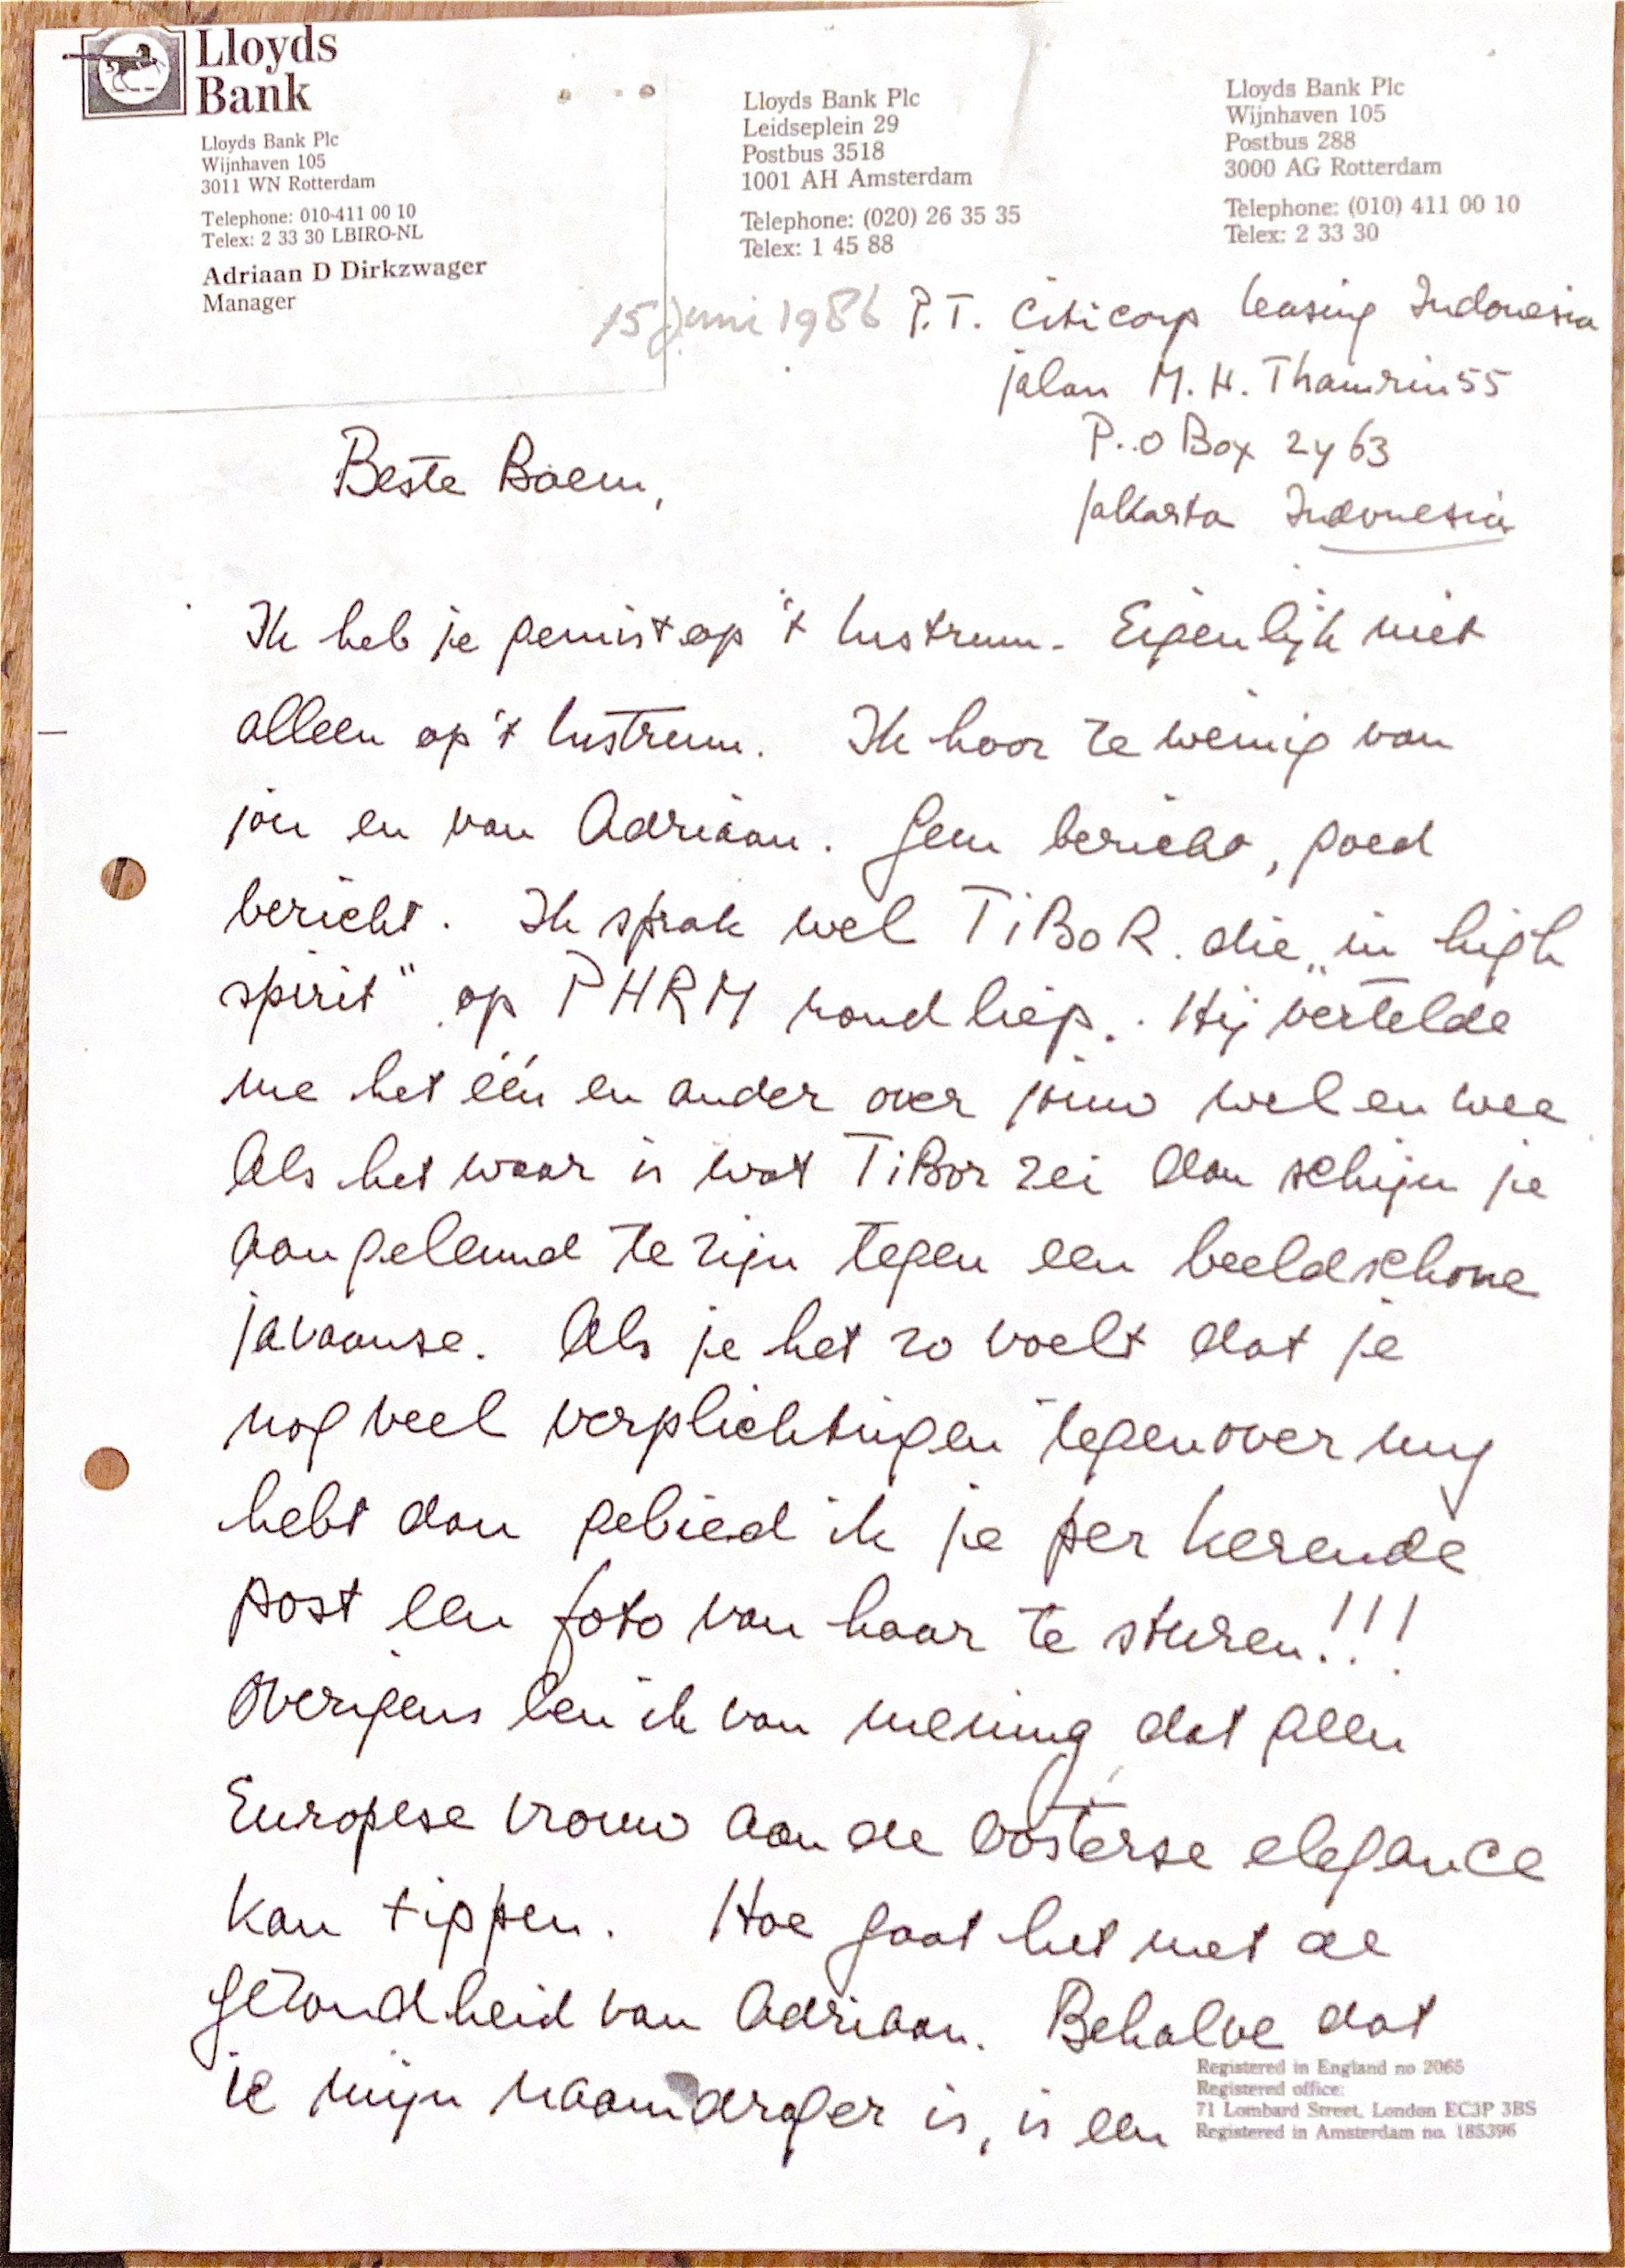 Lloyds
Bank
Lloyds Bank Plc
Wijnhaven 105
3011 WN Rotterdam
Telephone: 010-411 00 10
Telex: 2 33 30 LBIRO-NL
Adriaan D Dirkzwager
Manager
Lloyds Bank Plc
Leidseplein 29
Postbus 3518
1001 AH Amsterdam
Telephone: (020) 26 35 35
Telex: 1 45 88
Lloyds Bank Plc
Wijnhaven 105
Postbus 288
3000 AG Rotterdam
Telephone: (010) 411 00 10
Telex: 2 33 30
15 juni 1986
P.T. Citicorp leasing Indonesia
jalan M.H. Thamrin 55
P.O Box 2463
Jakarta Indonesia
Beste Boem,
Ik heb je gemist op 't lustrum. Eigenlijk niet
alleen op 't lustrum. Ik hoor te weinig van
jou en van Adriaan. Geen bericht, goed
bericht. Ik sprak wel TiBoR. die „in high
spirit" op PHRM rondliep. Hij vertelde
me het één en ander over jouw wel en wee
Als het waar is wat TiBor zei dan schijn je
aangeleund te zijn tegen een beeldschone
javaanse. Als je het zo voelt dat je
nog veel verplichtingen tegenover mij
hebt dan gebied ik je per kerende
post een foto van haar te sturen!!!
Overigens ben ik van mening dat geen
Europese vrouw aan de oosterse elegance
kan tippen. Hoe gaat het met de
gezondheid van Adriaan. Behalve dat
ie mijn naamdrager is, is een
Registered in England no 2065
Registered office:
71 Lombard Street, London EC3P 3BS
Registered in Amsterdam no. 185396